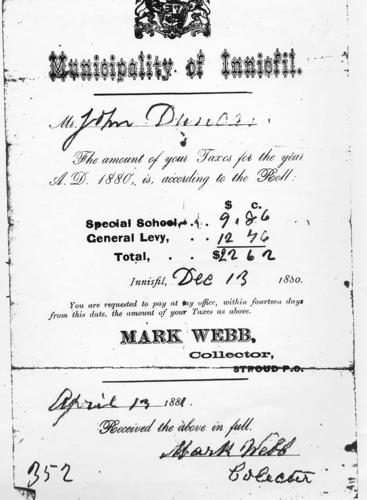 Municipality of Innisfil.
Mr. John Duncan
The amount of your Taxes for the year
A. D. 1880, is, according to the Roll:
$ c.
Special School, . . 9.86
General Levy, . . 12 76
Total, . . $22 62
Innisfil, Dec 13 1880.
You are requested to pay at my office, within fourteen days
from this date, the amount of your Taxes as above.
MARK WEBB,
Collector,
STROUD P.O.
April 13 1881
Received the above in full.
Mark Webb
Colecter
352